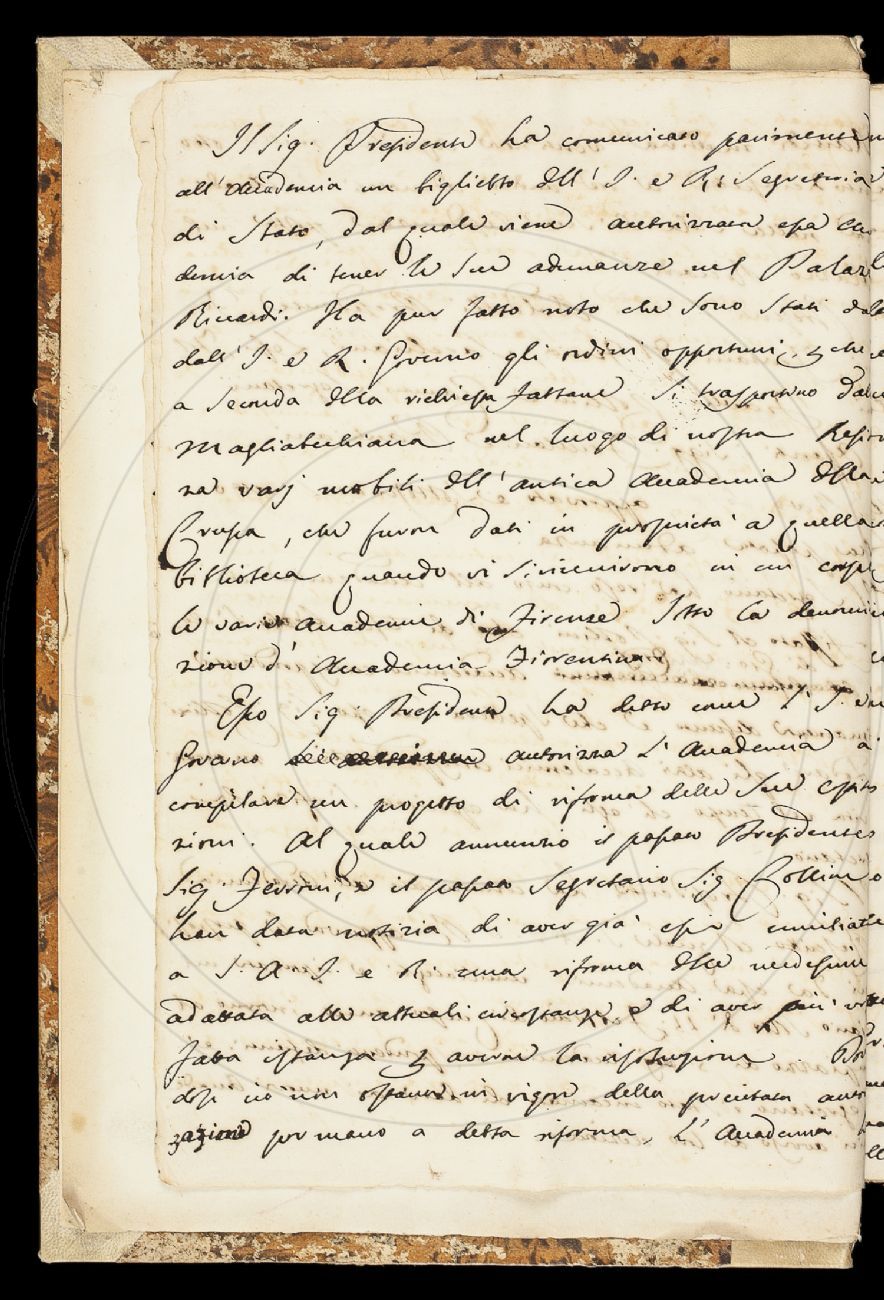 Il Sig. Presidente ha comunicato parimente
all'Accademia un biglietto dell'I. e R. Segreteria
di Stato, dal quale viene autorizzata essa Acca
demia di tener le sue adunanze nel Palazz
Riccardi. Ha pur fatto noto che sono stati dati
dall'I. e R. Governo gli ordini opportuni, che
a seconda della richiesta fattane si trasportino dalla
Magliabechiana nel luogo di nostra Residen
za varj mobili dell'antica Accademia della
Crusca, che furon dati in proprietà a quella
biblioteca quando vi si riunirono in un corpo
le varie Accademie di Firenze sotto la denomi
zione d'Accademia Fiorentina.
Esso Sig. Presidente ha detto come l'I. e R.
Governo autorizza l'Accademia a
compilare un progetto di riforma delle sue Costitu
zioni. Al quale annunzio il passato Presidente
Sig. Ferroni, e il passato Segretario Sig. Collini
han data notizia di aver già essi umiliata
a S. A. I. e R. una riforma delle medesime
adattata alle attuali circostanze, e di aver più volte
fatta istanza averne la risoluzione.
dosi ciò non ostante in vigore della precitata autoriz
zazione por mano a detta riforma, L'Accademia